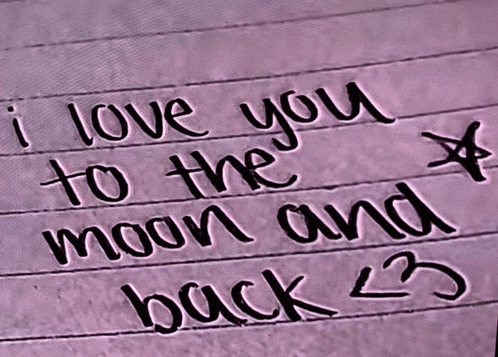 i love you
to the
moon and
back <3